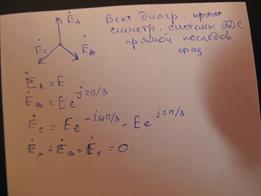 Ė_A
Ė_C
Ė_B
Вект. диагр.
симетр. системы ЭДС
прямой последов
фаз
Ė_A = E
Ė_B = E e^{j2π/3}
Ė_C = E e^{-j4π/3} = E e^{j2π/3}
Ė_A + Ė_B + Ė_C = 0.